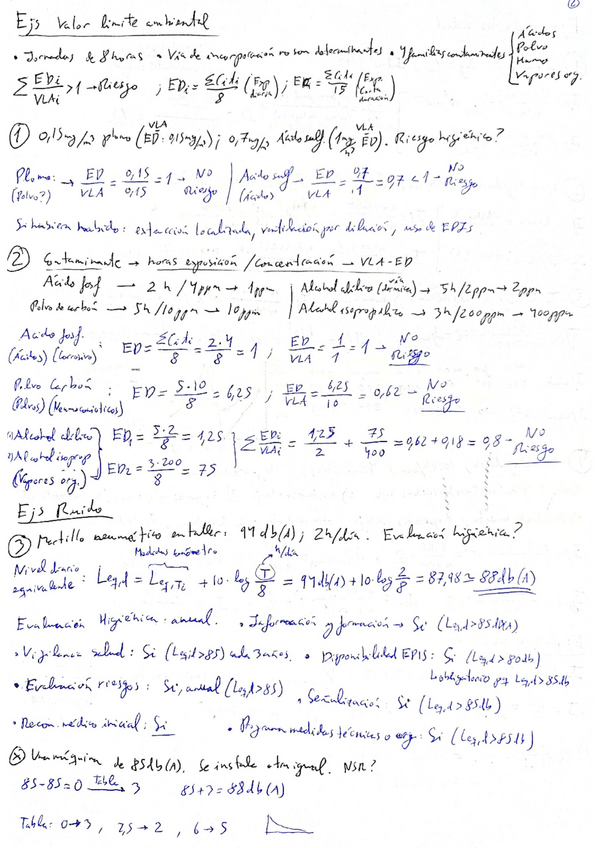 6
Ejs Valor limite ambiental
• Jornadas de 8 horas • Via de incorporación no son determinantes • 4 familias contaminantes { Ácidos
Polvo
Humo
Vapores org.
Σ EDi/VLAi > 1 → Riesgo ; EDi = Σ Ci·ti / 8 (Exp. diaria) ; = Σ Ci·ti / 15 (Exp. Corta duración)
① 0,15 mg/m³ plomo (VLA ED = 0,15 mg/m³) ; 0,7 mg/m³ Ácido sulf. (1 mg/m³ VLA ED). Riesgo higiénico?
Plomo: (Polvo?) → ED/VLA = 0,15/0,15 = 1 → NO Riesgo | Ácido sulf (Ácidos) → ED/VLA = 0,7/1 = 0,7 < 1 → NO Riesgo
Si hubiera habido: extracción localizada, ventilación por dilución, uso de EPIs
② Contaminante → horas exposición / Concentración → VLA-ED
Ácido fosf → 2 h / 4 ppm → 1 ppm | Alcohol alilico → 5h / 2ppm → 2ppm
Polvo de carbón → 5h / 10 ppm → 10 ppm | Alcohol isopropilico → 3h / 200 ppm → 400 ppm
Acido fosf. (Ácidos) (Corrosivo): ED = Σ Ci·ti / 8 = 2·4/8 = 1 ; ED/VLA = 1/1 = 1 → NO Riesgo
Polvo Carbón (Polvos) (Neumoconioticos): ED = 5·10/8 = 6,25 ; ED/VLA = 6,25/10 = 0,62 → NO Riesgo
1) Alcohol alilico } ED₁ = 5·2/8 = 1,25 } Σ EDi/VLAi = 1,25/2 + 75/400 = 0,62 + 0,18 = 0,8 → NO Riesgo
2) Alcohol isoprop
(Vapores org.) ED₂ = 3·200/8 = 75
Ejs Ruido
③ Martillo neumático en taller: 94 db(A) ; 2h/día. Evaluación higiénica?
Medidas sonómetro h/día
Nivel diario equivalente: Leq,d = Leq,Ti + 10·log T/8 = 94 db(A) + 10·log 2/8 = 87,98 ≃ 88 db(A)
Evaluación Higiénica: anual. • Información y formación → Si (Leq,d > 85 db(A))
• Vigilancia salud: Si (Leq,d > 85) cada 3 años. • Disponibilidad EPIS: Si (Leq,d > 80 db)
L obligatorio pq Leq,d > 85 db
• Evaluación riesgos: Si, anual (Leq,d > 85) • Señalización: Si (Leq,d > 85 db)
• Recon. médico inicial: Si • Programa medidas técnicas o org: Si (Leq,d > 85 db)
ⓧ Una máquina de 85 db(A). Se instala otra igual. NSR?
85-85 = 0 Tabla → 3 85+3 = 88 db(A)
Tabla: 0 → 3 , 2,5 → 2 , 6 → 5